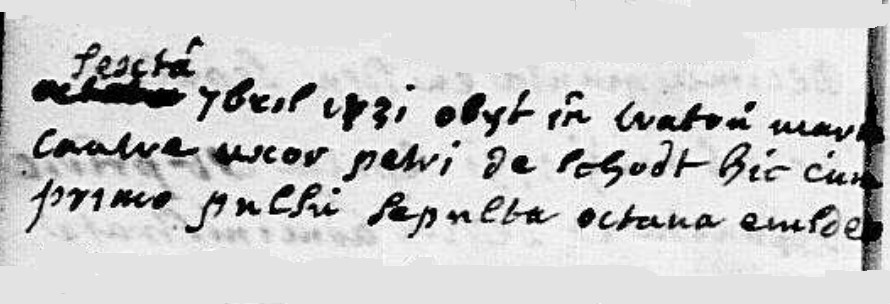 sesctâ
7bris 1731 obyt in watou maria
cauwe uxor petri de schodt hic cum
primo pulsu sepulta octava eiusdem